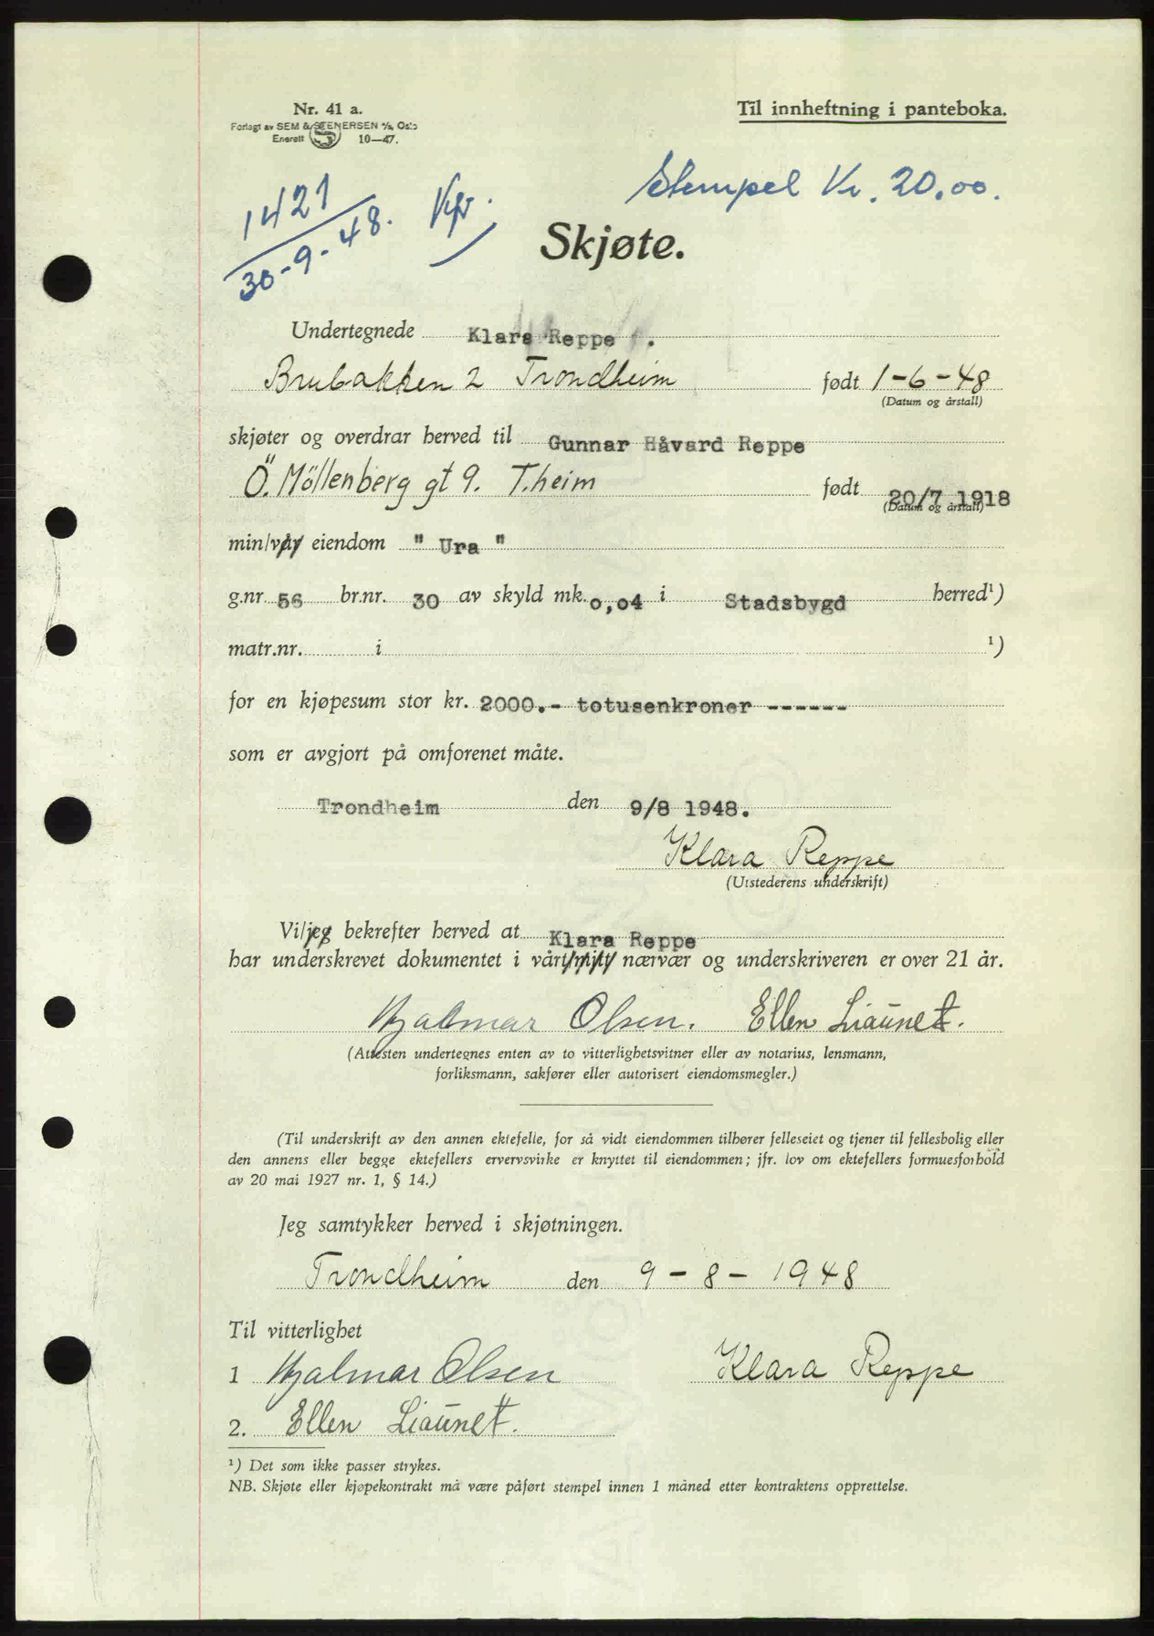 Nr. 41 a.
Forlagt av SEM & STENERSEN A/S, Oslo
Enerett 10—47.
Til innheftning i panteboka.
Stempel Kr. 20.00.
1421
30-9-48.
Skjøte.
Undertegnede Klara Reppe .
Brubakken 2 Trondheim født 1-6-48
(Datum og årstall)
skjøter og overdrar herved til Gunnar Håvard Reppe
Ö. Möllenberg gt 9. T.heim født 20/7 1918
(Datum og årstall)
min/vår eiendom " Ura "
g.nr. 56 br.nr. 30 av skyld mk. 0,04 i Stadsbygd herred¹)
matr.nr. i ¹)
for en kjøpesum stor kr. 2000.- totusenkroner ------
som er avgjort på omforenet måte.
Trondheim den 9/8 1948.
Klara Reppe
(Utstederens underskrift)
Vi/jeg bekrefter herved at Klara Reppe
har underskrevet dokumentet i vårt/mitt nærvær og underskriveren er over 21 år.
Hjalmar Olsen. Ellen Liaunet.
(Attesten undertegnes enten av to vitterlighetsvitner eller av notarius, lensmann,
forliksmann, sakfører eller autorisert eiendomsmegler.)
(Til underskrift av den annen ektefelle, for så vidt eiendommen tilhører felleseiet og tjener til fellesbolig eller
den annens eller begge ektefellers ervervsvirke er knyttet til eiendommen; jfr. lov om ektefellers formuesforhold
av 20 mai 1927 nr. 1, § 14.)
Jeg samtykker herved i skjøtningen.
Trondheim den 9-8-1948
Til vitterlighet
1 Hjalmar Olsen Klara Reppe
2. Ellen Liaunet.
¹) Det som ikke passer strykes.
NB. Skjøte eller kjøpekontrakt må være påført stempel innen 1 måned etter kontraktens opprettelse.